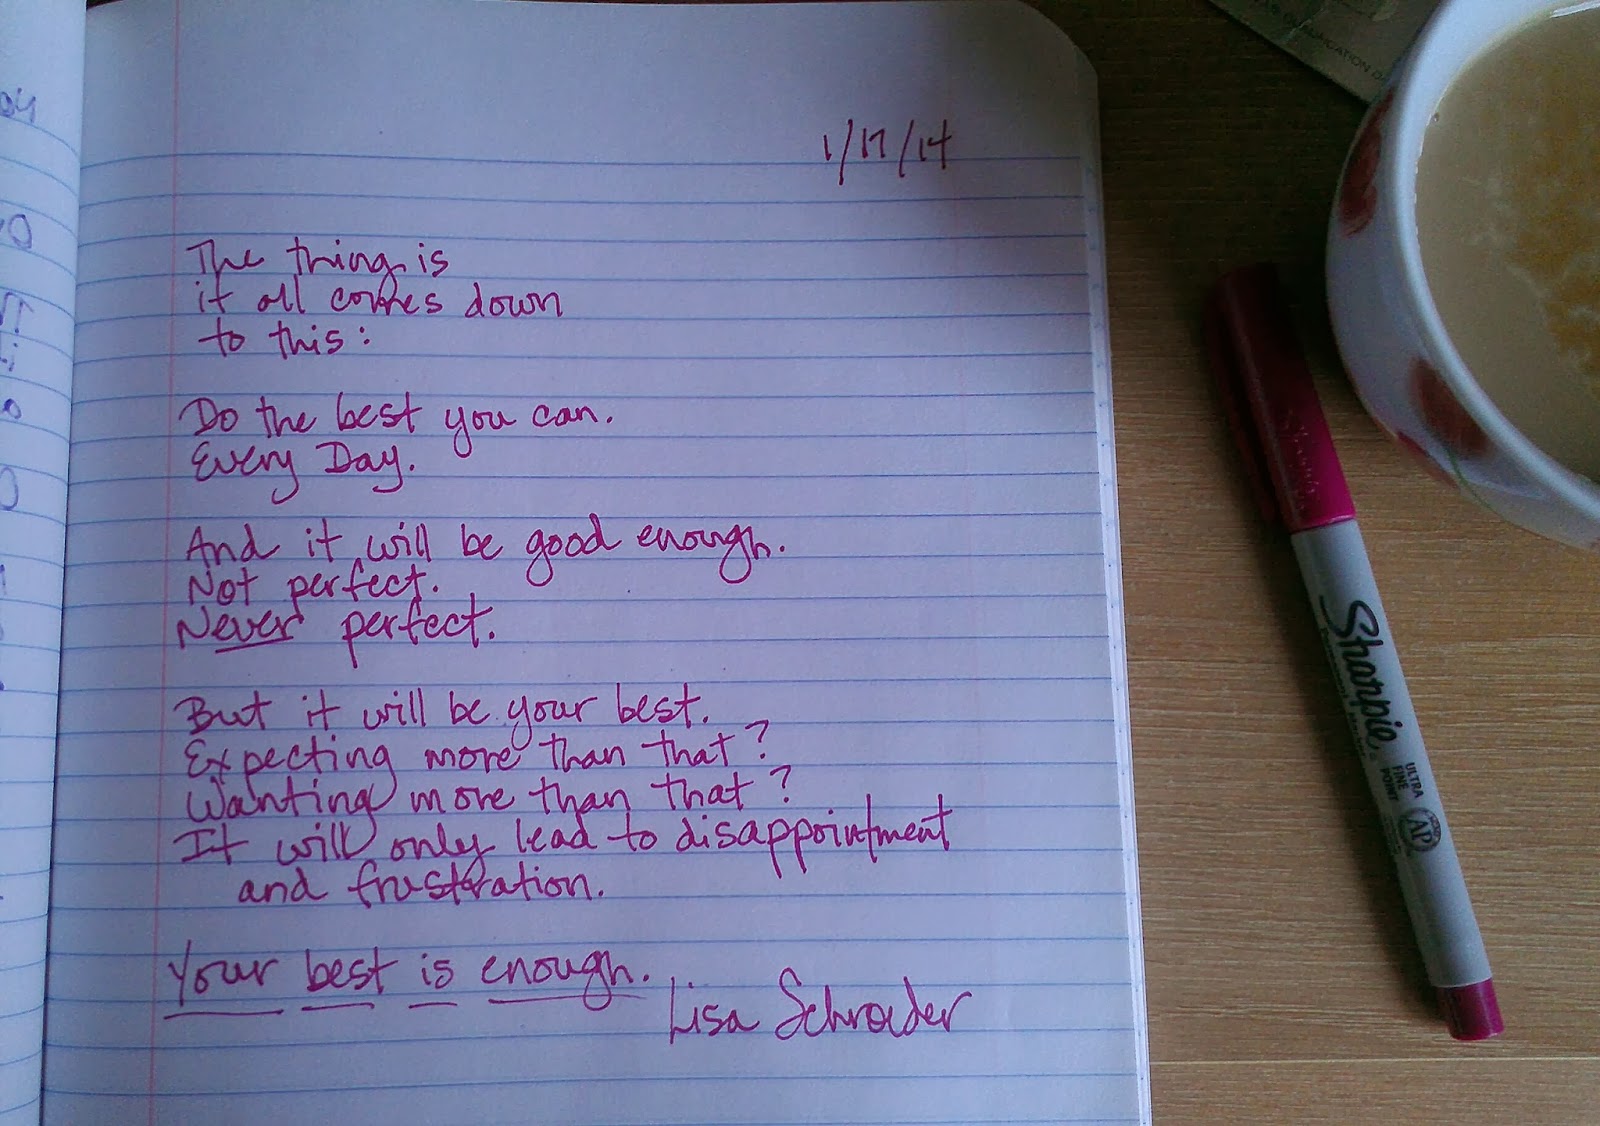 1/17/14
The thing is
it all comes down
to this:
Do the best you can.
Every Day.
And it will be good enough.
Not perfect.
Never perfect.
But it will be your best.
Expecting more than that?
Wanting more than that?
It will only lead to disappointment
and frustration.
Your best is enough.
Lisa Schroeder
Sharpie
ULTRA
FINE
POINT
AP